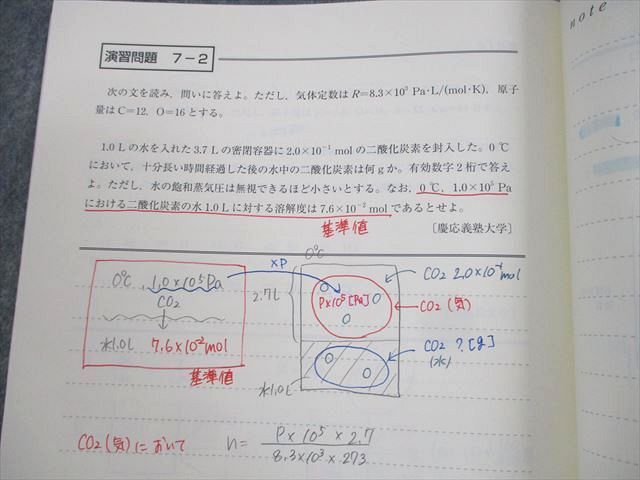 note
演習問題 7-2
次の文を読み，問いに答えよ。ただし，気体定数は R=8.3×10³ Pa·L/(mol·K)，原子
量は C=12，O=16 とする。
1.0 L の水を入れた 3.7 L の密閉容器に 2.0×10⁻¹ mol の二酸化炭素を封入した。0 ℃
において，十分長い時間経過した後の水中の二酸化炭素は何 g か。有効数字 2 桁で答え
よ。ただし，水の飽和蒸気圧は無視できるほど小さいとする。なお，0 ℃，1.0×10⁵ Pa
における二酸化炭素の水 1.0 L に対する溶解度は 7.6×10⁻² mol であるとせよ。
基準値
〔慶応義塾大学〕
0℃, 1.0×10⁵Pa
CO₂
水1.0L 7.6×10⁻²mol
基準値
×P
0℃
2.7L
P×10⁵[Pa]
水1.0L
CO₂ 2.0×10⁻¹mol
CO₂(気)
CO₂ ?[g]
(水)
CO₂(気)において
n= P×10⁵×2.7
8.3×10³×273